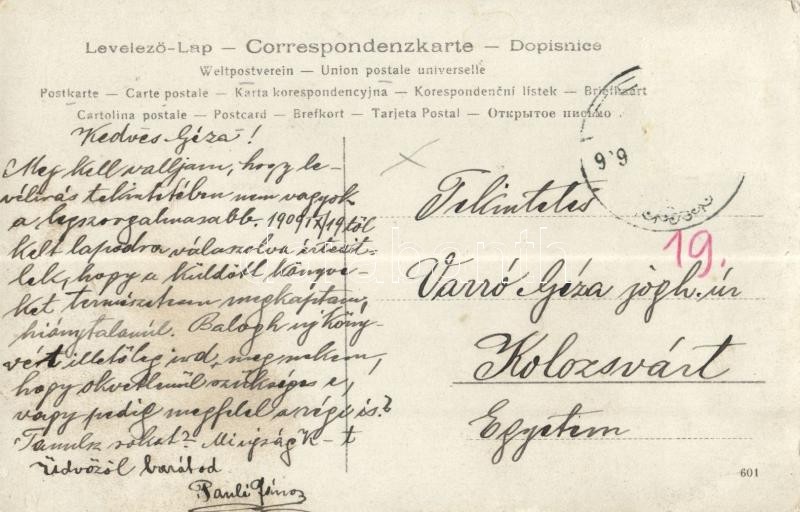 Levelező-Lap — Correspondenzkarte — Dopisnice
Weltpostverein — Union postale universelle
Postkarte — Carte postale — Karta korespondencyjna — Korespondenční lístek — Briefkaart
Cartolina postale — Postcard — Brefkort — Tarjeta Postal — Открытое письмо
Kedves Géza!
Meg kell valljam, hogy le-
vélirás tekintetében nem vagyok
a legszorgalmasabb. 1909 IX/19 től
kelt lapodra válaszolva értesit-
lek, hogy a küldött könyve-
ket természetesen megkaptam,
hiánytalanúl. Balogh új köny-
vért illetőleg ird meg nekem,
hogy okvetlenül szükséges e,
vagy pedig megfelel a régi is?
Tanulsz sokat?
Üdvözöl barátod
Pauli János
6.6
19.
Tekintetes
Varró Géza jogh. úr
Kolozsvárt
Egyetem
601